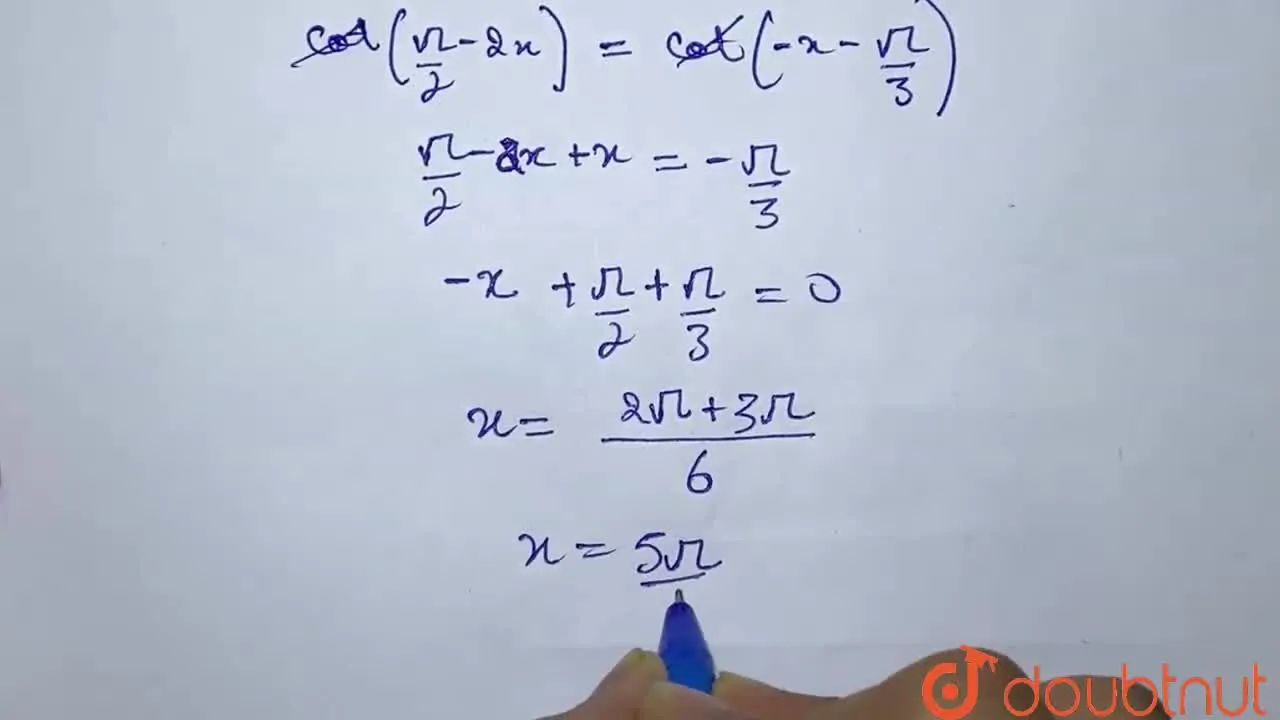 cot(π/2 - 2x) = cot(-x - π/3)
π/2 - 2x + x = -π/3
-x + π/2 + π/3 = 0
x = 2π + 3π / 6
x = 5π
doubtnut